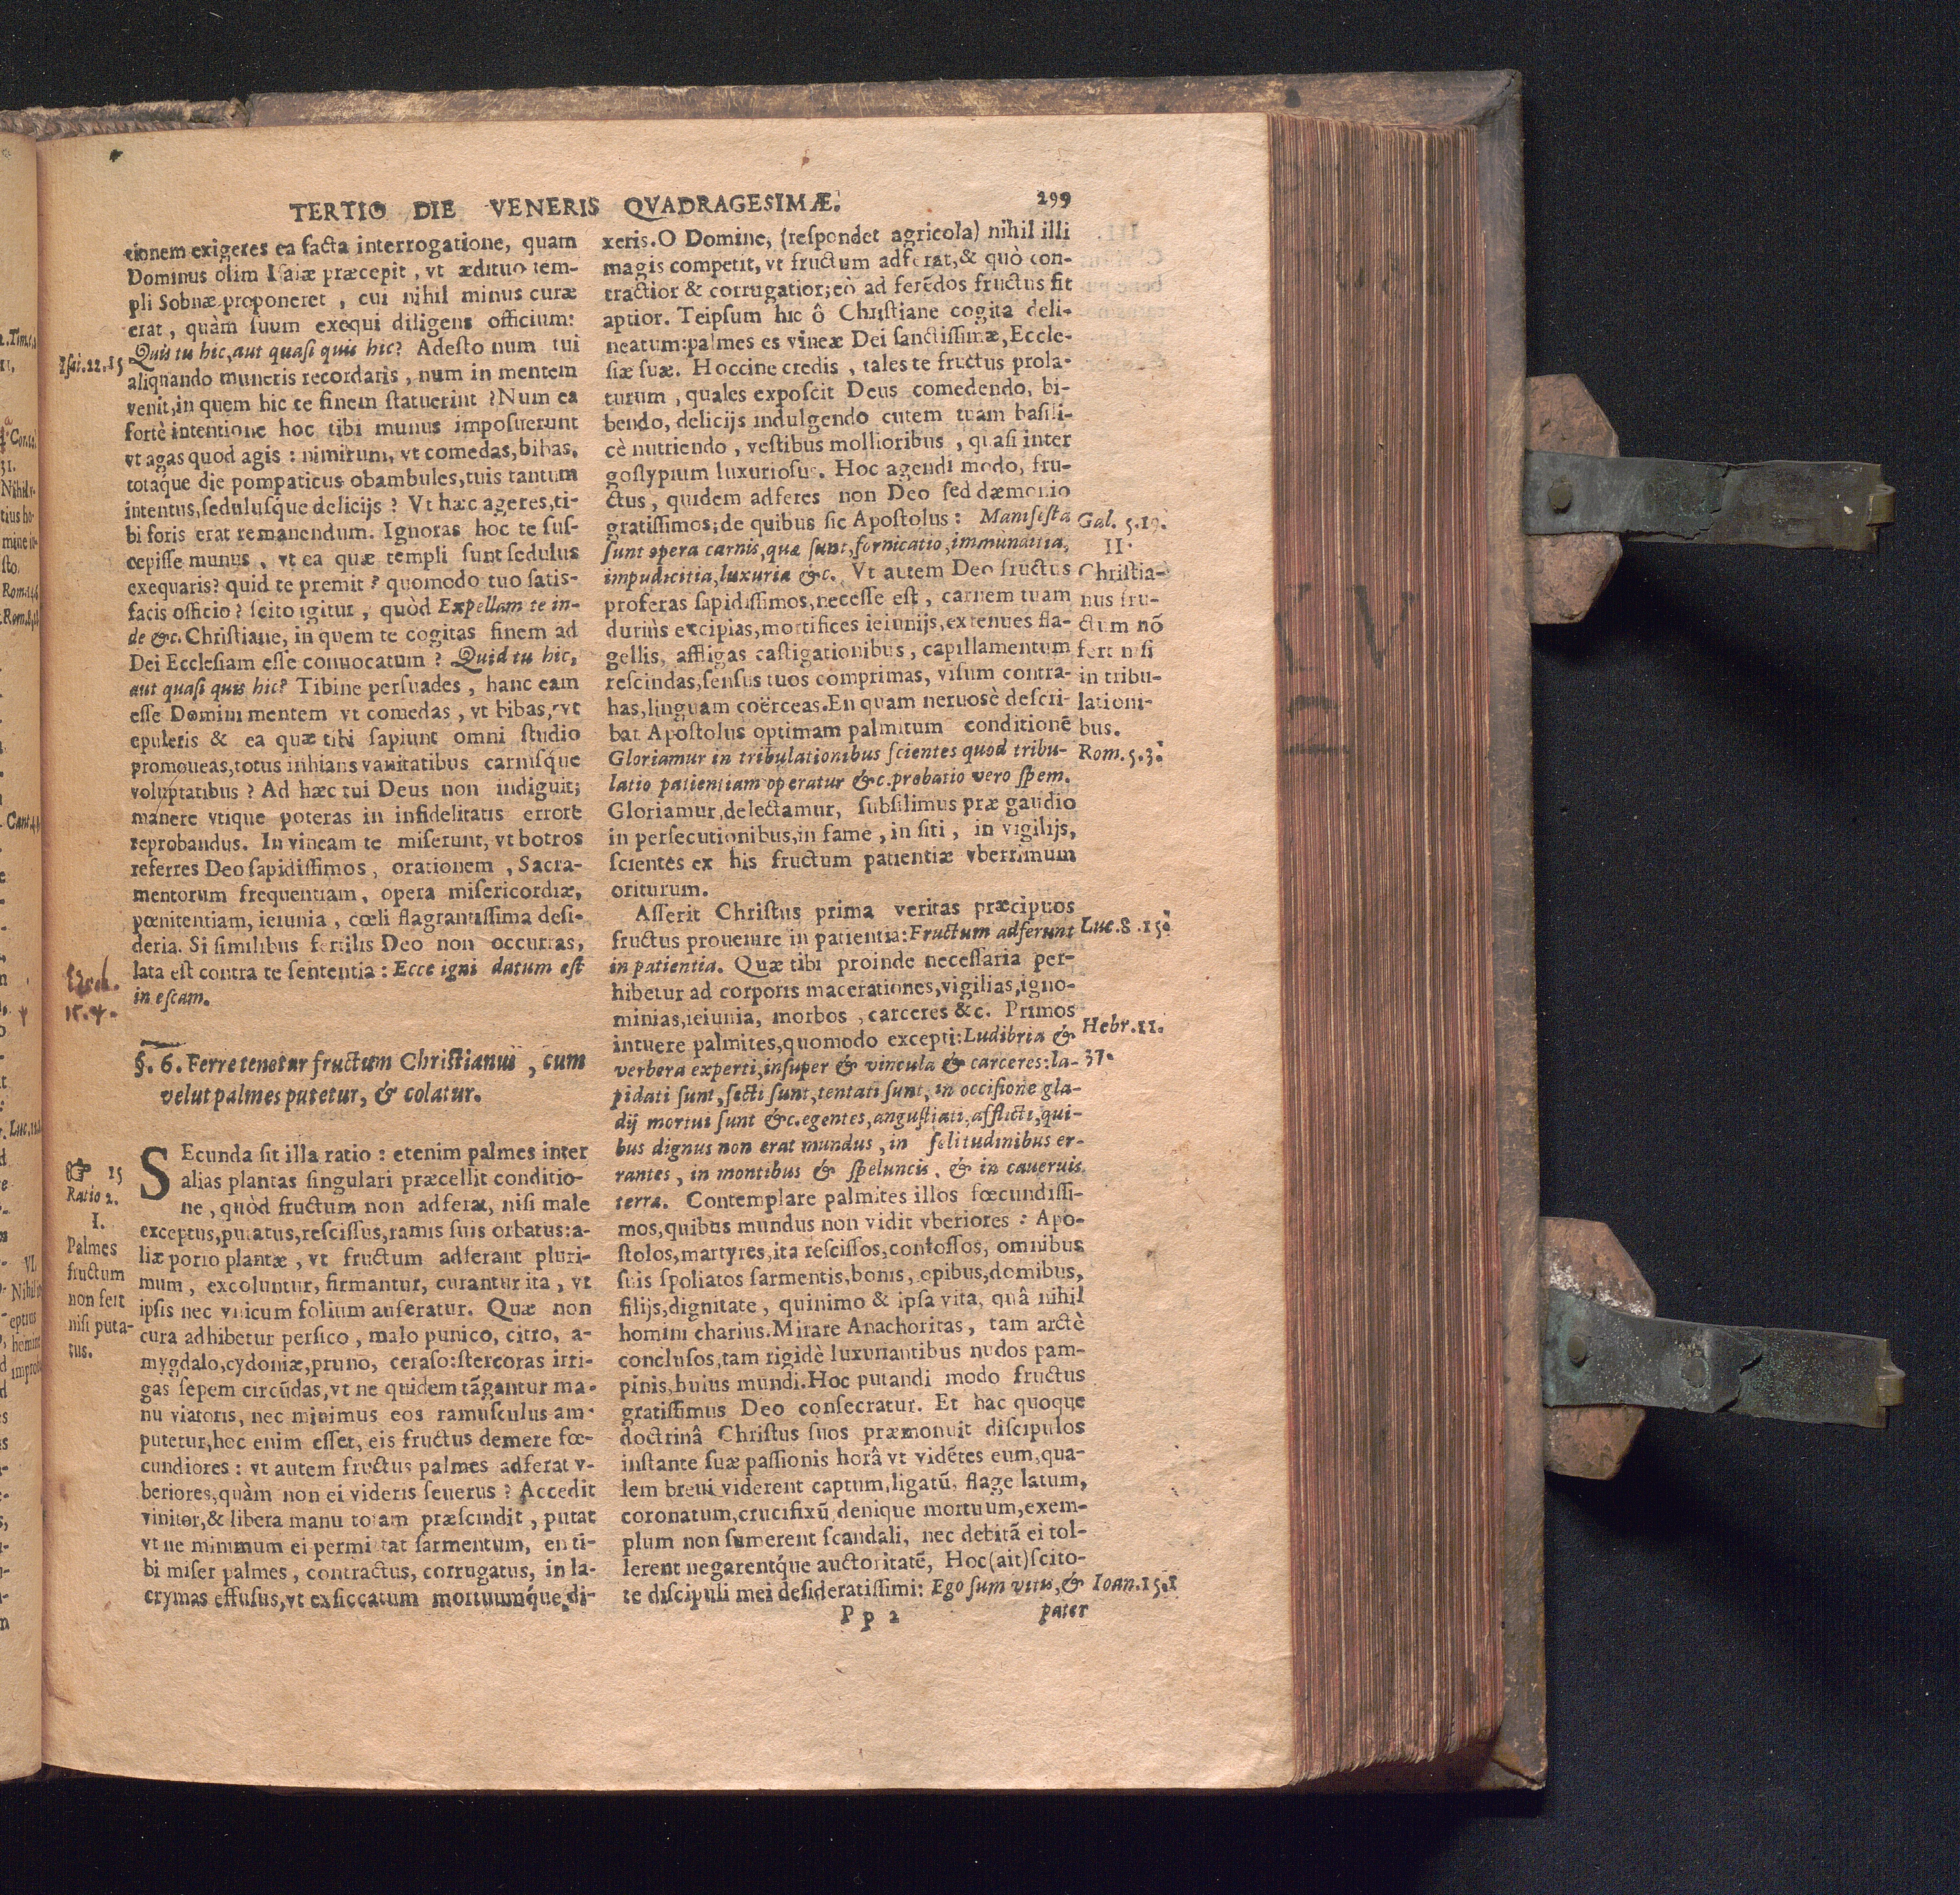 TERTIO DIE VENERIS QVADRAGESIMÆ. 299
tionem exigeres ea facta interrogatione, quam
Dominus olim Isaiæ præcepit, vt ædituo tem-
pli Sobnæ proponeret, cui nihil minus curæ
erat, quàm suum exequi diligens officium:
Quis tu hic, aut quasi quis hic? Adesto num tui
aliquando muneris recordaris, num in mentem
venit, in quem hic te finem statuerint? Num ea
fortè intentione hoc tibi munus imposuerunt
vt agas quod agis: nimirum, vt comedas, bibas,
totáque die pompaticus obambules, tuis tantum
intentus, sedulusque delicijs? Vt hæc ageres, ti-
bi foris erat remanendum. Ignoras hoc te sus-
cepisse munus, vt ea quæ templi sunt sedulus
exequaris? quid te premit? quomodo tuo satis-
facis officio? scito igitur, quòd Expellam te in-
de &c. Christiane, in quem te cogitas finem ad
Dei Ecclesiam esse conuocatum? Quid tu hic,
aut quasi quis hic? Tibine persuades, hanc eam
esse Domini mentem vt comedas, vt bibas, vt
epuleris & ea quæ tibi sapiunt omni studio
promoueas, totus inhians vanitatibus carnisq́ue
voluptatibus? Ad hæc tui Deus non indiguit;
manere vtique poteras in infidelitatis errore
reprobandus. In vineam te miserunt, vt botros
referres Deo sapidissimos, orationem, Sacra-
mentorum frequentiam, opera misericordiæ,
pœnitentiam, ieiunia, cœli flagrantissima desi-
deria. Si similibus fertilis Deo non occurras,
lata est contra te sententia: Ecce igni datum est
in escam.
§. 6. Ferre tenetur fructum Christianus, cum
velut palmes putetur, & colatur.
SEcunda sit illa ratio: etenim palmes inter
alias plantas singulari præcellit conditio-
ne, quòd fructum non adferat, nisi male
exceptus, putatus, rescissus, ramis suis orbatus: a-
liæ porro plantæ, vt fructum adferant pluri-
mum, excoluntur, firmantur, curantur ita, vt
ipsis nec vnicum folium auferatur. Quæ non
cura adhibetur persico, malo punico, citro, a-
mygdalo, cydoniæ, pruno, ceraso: stercoras irri-
gas sepem circũdas, vt ne quidem tãgantur ma-
nu viatoris, nec minimus eos ramusculus am-
putetur, hoc enim esset, eis fructus demere fœ-
cundiores: vt autem fructus palmes adferat v-
beriores, quàm non ei videris seuerus? Accedit
vinitor, & libera manu totam præscindit, putat
vt ne minimum ei permittat sarmentum, en ti-
bi miser palmes, contractus, corrugatus, in la-
crymas effusus, vt exsiccatum mortuumq́ue di-
Isai. 22. 15
Ezech.
15. 4.
☞ 15
Ratio 2.
I.
Palmes
fructum
non fert
nisi puta-
tus.
xeris. O Domine, (respondet agricola) nihil illi
magis competit, vt fructum adferat, & quò con-
tractior & corrugatior; eò ad ferẽdos fructus fit
aptior. Teipsum hic ô Christiane cogita deli-
neatum: palmes es vineæ Dei sanctissimæ, Eccle-
siæ suæ. Hoccine credis, tales te fructus prola-
turum, quales exposcit Deus comedendo, bi-
bendo, delicijs indulgendo cutem tuam basili-
cè nutriendo, vestibus mollioribus, quasi inter
gossypium luxuriosus. Hoc agendi modo, fru-
ctus, quidem adferes non Deo sed dæmonio
gratissimos; de quibus sic Apostolus: Manifesta
sunt opera carnis, quæ sunt, fornicatio, immunditia,
impudicitia, luxuria &c. Vt autem Deo fructus
proferas sapidissimos, necesse est, carnem tuam
duriùs excipias, mortifices ieiunijs, extenues fla-
gellis, affligas castigationibus, capillamentum
rescindas, sensus tuos comprimas, visum contra-
has, linguam coërceas. En quam neruosè descri-
bat Apostolus optimam palmitum conditionẽ
Gloriamur in tribulationibus scientes quod tribu-
latio patientiam operatur &c. probatio vero spem.
Gloriamur, delectamur, subsilimus præ gaudio
in persecutionibus, in fame, in siti, in vigilijs,
scientes ex his fructum patientiæ vberrimum
oriturum.
Asserit Christus prima veritas præcipuos
fructus prouenire in patientia: Fructum adferunt
in patientia. Quæ tibi proinde necessaria per-
hibetur ad corporis macerationes, vigilias, igno-
minias, ieiunia, morbos, carceres &c. Primos
intuere palmites, quomodo excepti: Ludibria &
verbera experti, insuper & vincula & carceres: la-
pidati sunt, secti sunt, tentati sunt, in occisione gla-
dij mortui sunt &c. egentes, angustiati, afflicti, qui-
bus dignus non erat mundus, in solitudinibus er-
rantes, in montibus & speluncis, & in cauernis
terræ. Contemplare palmites illos fœcundissi-
mos, quibus mundus non vidit vberiores: Apo-
stolos, martyres, ita rescissos, confossos, omnibus
suis spoliatos sarmentis, bonis, opibus, domibus,
filijs, dignitate, quinimo & ipsa vita, quâ nihil
homini charius. Mirare Anachoritas, tam arctè
conclusos, tam rigidè luxuriantibus nudos pam-
pinis, huius mundi. Hoc putandi modo fructus
gratissimus Deo consecratur. Et hac quoque
doctrinâ Christus suos præmonuit discipulos
instante suæ passionis horâ vt vidẽtes eum, qua-
lem breui viderent captum, ligatũ, flagellatum,
coronatum, crucifixũ denique mortuum, exem-
plum non sumerent scandali, nec debitã ei tol-
lerent negarentq́ue auctoritatẽ, Hoc (ait) scito-
te discipuli mei desideratissimi: Ego sum vitis, &
Pp 2 pater
Gal. 5. 19.
II.
Christia-
nus fru-
ctum nõ
fert nisi
in tribu-
lationi-
bus.
Rom. 5. 3.
Luc. 8. 15.
Hebr. 11.
37.
Ioan. 15. 1